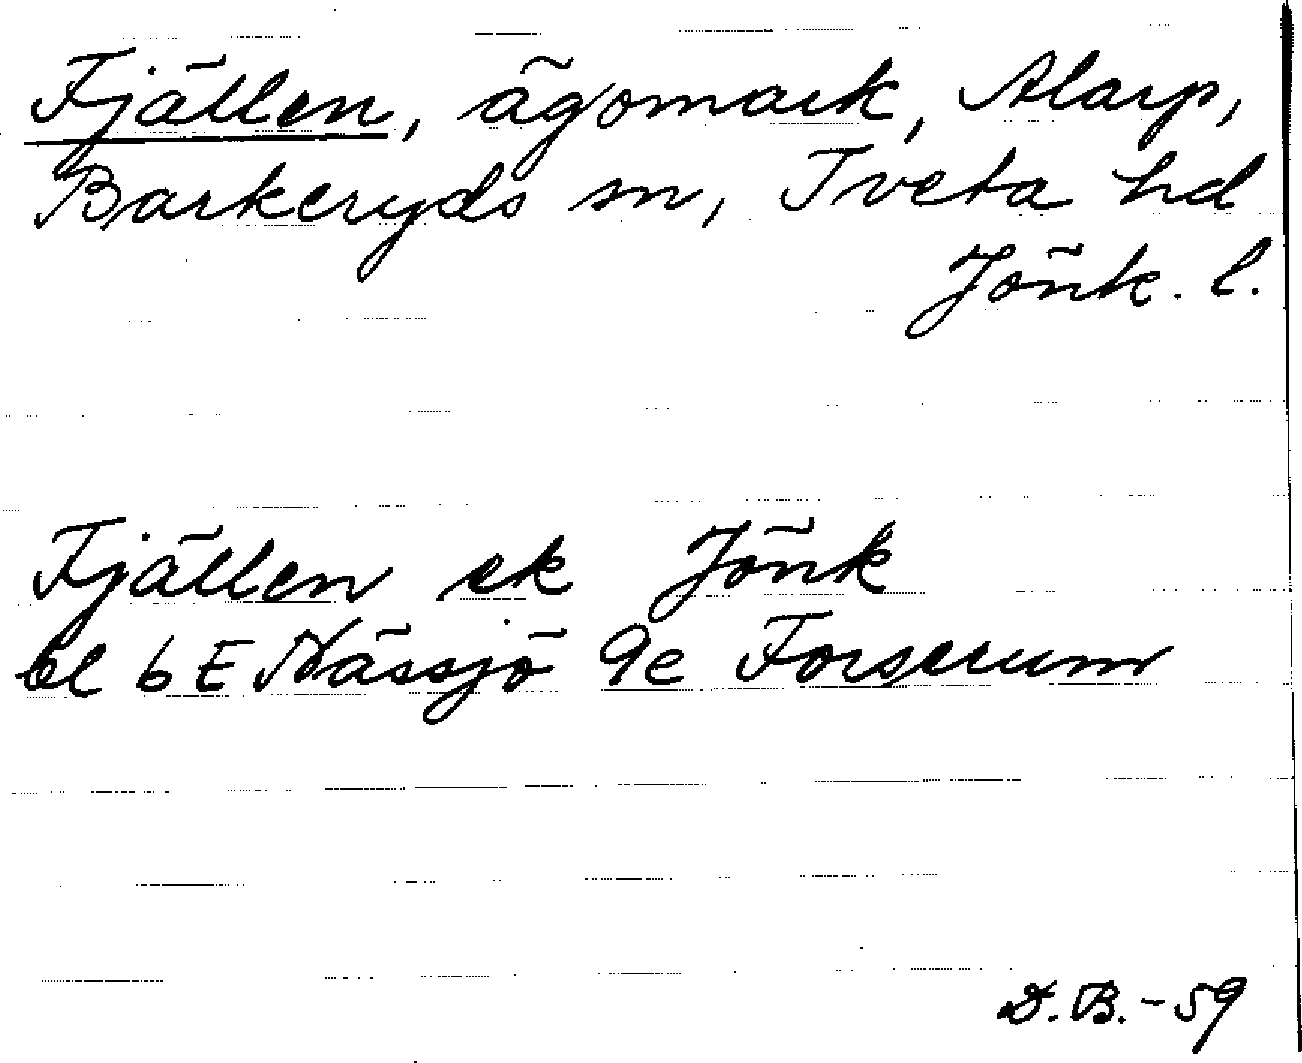 Fjällen, ägomark, Alarp,
Barkeryds sn, Tveta hd
Jönk. l.
Fjällen ek Jönk
bl 6 E Nässjö 9e Forserum
D.B.-59